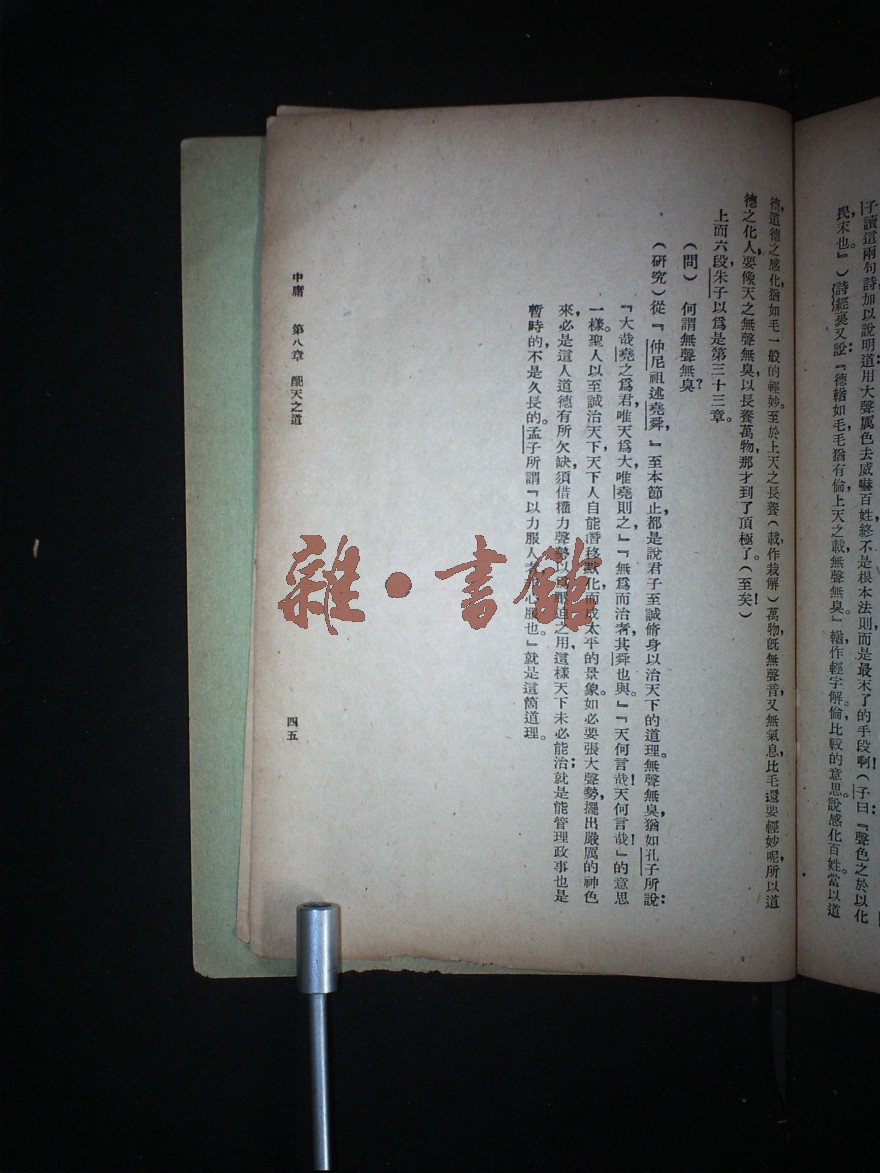 子讀這兩句詩加以說明道用大聲厲色去威嚇百姓終不是根本法則而是最末了的手段啊！(子曰：『聲色之於以化
民，末也。』)詩經裏又說：『德輶如毛，毛猶有倫，上天之載，無聲無臭。』輶作輕字解，倫，比較的意思。說感化百姓，當以道
德，道德之感化，猶如毛一般的輕妙。至於上天之長養(載作栽解)萬物，既無聲音，又無氣息，比毛還要輕妙呢，所以道
德之化人，要像天之無聲無臭，以長養萬物，那才到了頂極了！(至矣)
上面六段，朱子以爲是第三十三章。
(問)　何謂無聲無臭？
(研究)從『仲尼祖述堯舜，』至本節止，都是說君子至誠脩身以治天下的道理。無聲無臭，猶如孔子所說：
『大哉堯之爲君，唯天爲大，唯堯則之，』『無爲而治者，其舜也與。』『天何言哉！天何言哉！』的意思
一樣。聖人以至誠治天下，天下人自能潛移默化，而成太平的景象。如必要張大聲勢，擺出嚴厲的神色
來，必是這人道德有所欠缺，須借權力聲勢以爲壓迫之用，這樣天下未必能治；就是能管理政事，也是
暫時的，不是久長的。孟子所謂『以力服人者，非心服也。』就是這箇道理。
中庸　第八章　配天之道
四五
雜·書館